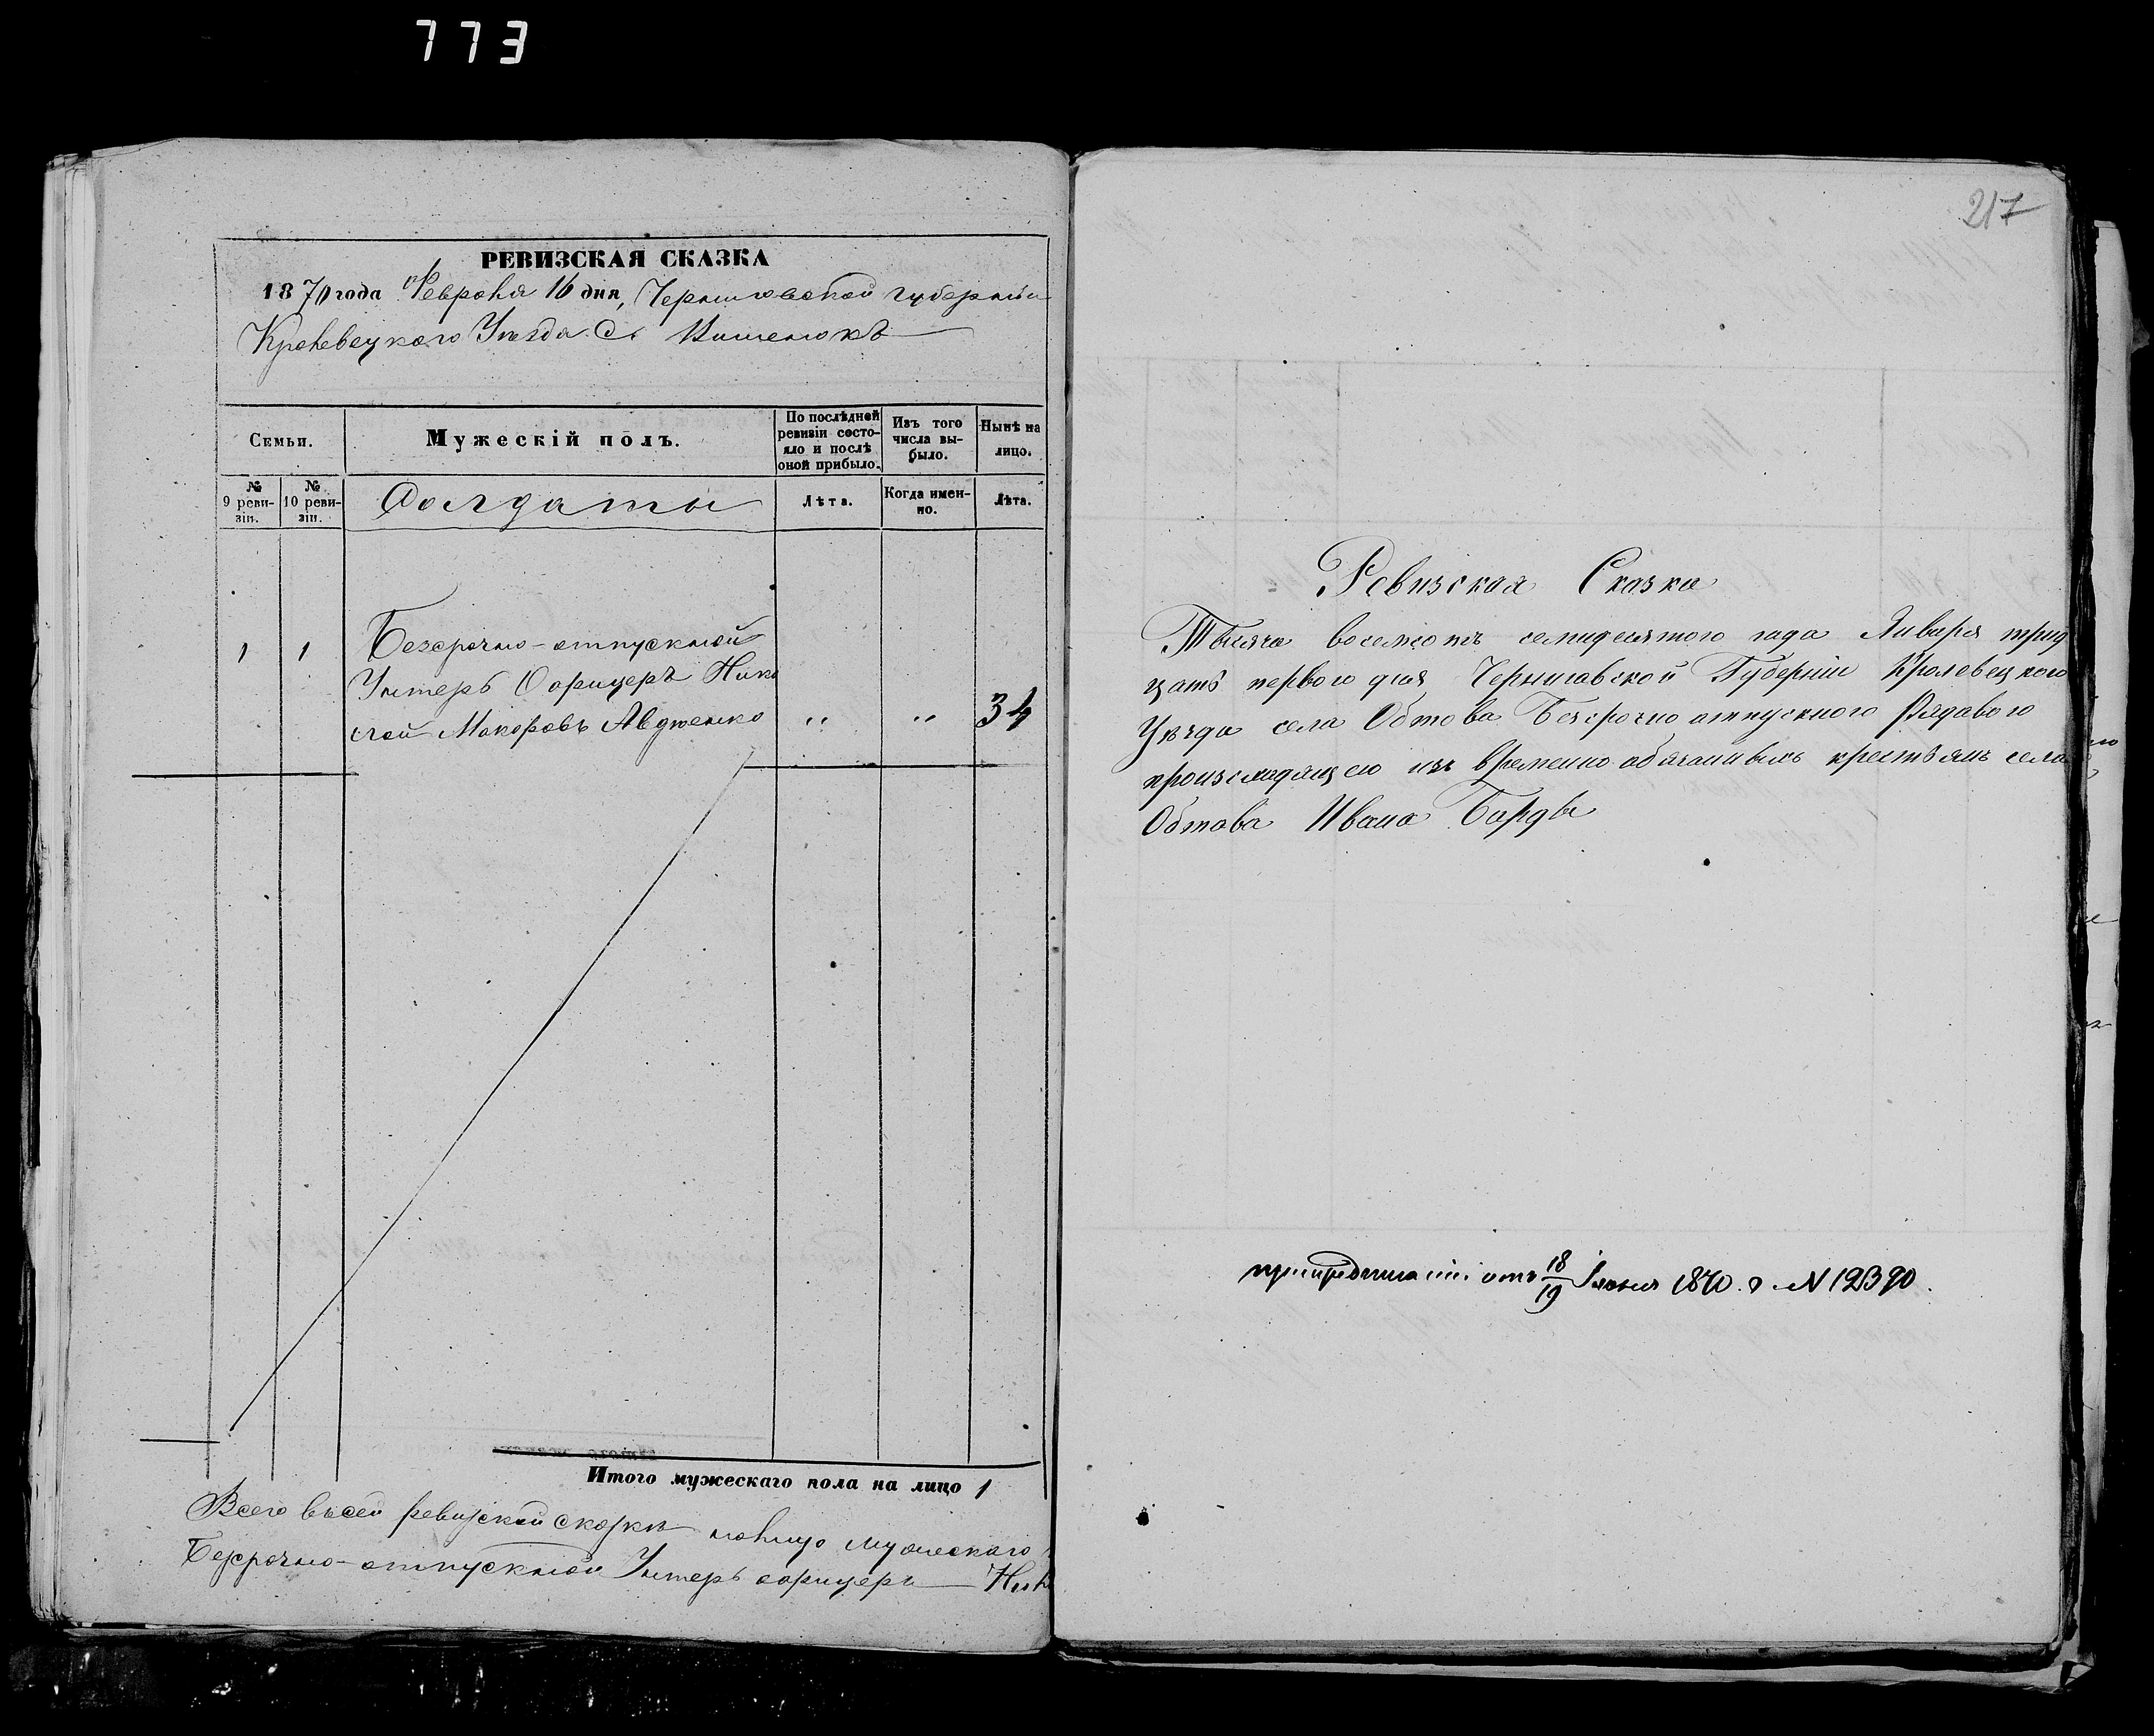 773
РЕВИЗСКАЯ СКАЗКА
1870 года Февраля 16 дня, Черниговской губерніи
Кролевецкого Уѣзда С. Вишенокъ
Семьи.
Мужескій полъ.
По послѣдней ревизіи состояло и послѣ оной прибыло.
Изъ того числа выбыло.
Нынѣ на лицо.
№ 9 ревизіи.
№ 10 ревизіи.
Солдаты
Лѣта.
Когда именно.
Лѣта.
Безсрочно-отпускной
1 1
Унтеръ Офицеръ Нико
лай Макаровъ Авдженко " " 34
Итого мужескаго пола на лицо 1
Всего въ сей ревизской сказки налицо мужескаго
Безсрочно-отпускной Унтеръ офицеръ — Ник
217
Ревизская Сказка
Тысяча восемсотъ семидесятого года Января трид
цать первого дня Черниговской Губерніи Кролевецкого
Уѣзда села Обтова Безсрочно отпускного Рядового
произходящего изъ временно обязанныхъ крестьянъ села
Обтова Ивана Барды
отъ 18/19 1870. г №12390.